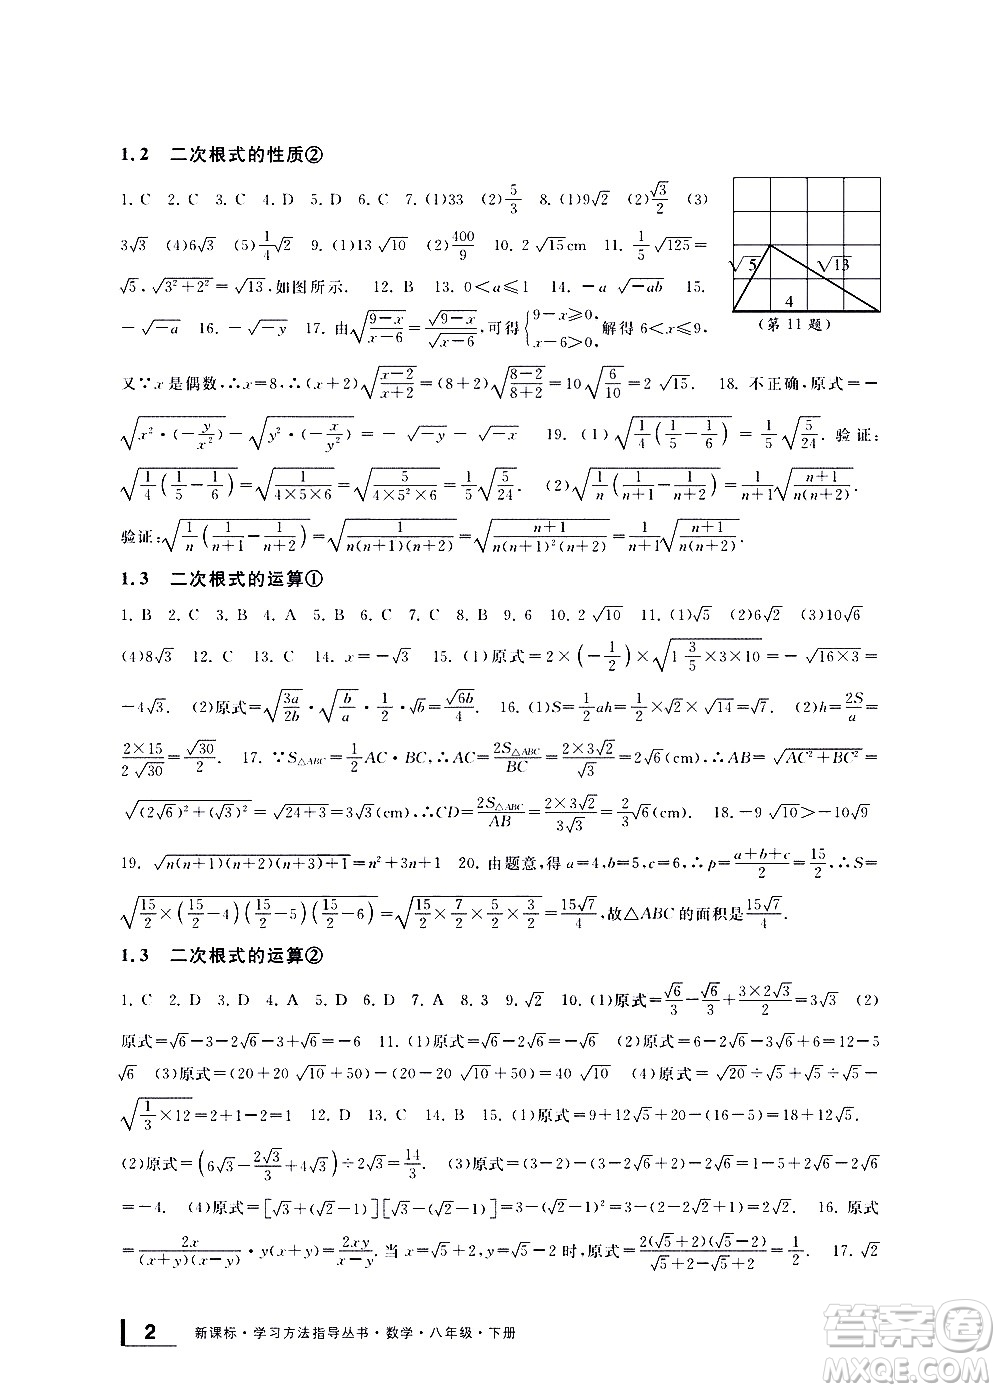 1.2 二次根式的性质②
1. C 2. C 3. C 4. D 5. D 6. C 7. (1)33 (2)5/3 8. (1)9√2 (2)√3/2 (3)
3√3 (4)6√3 (5)1/4√2 9. (1)13√10 (2)400/9 10. 2√15cm 11. 1/5√125=
√5,√(3²+2²)=√13,如图所示. 12. B 13. 0<a≤1 14. -a√(-ab) 15.
-√(-a) 16. -√(-y) 17. 由√((9-x)/(x-6))=√(9-x)/√(x-6),可得{9-x≥0, x-6>0,解得6<x≤9,
√5 √13 4
(第11题)
又∵x是偶数,∴x=8,∴(x+2)√((x-2)/(x+2))=(8+2)√((8-2)/(8+2))=10√(6/10)=2√15. 18. 不正确,原式=-
√(x²·(-y/x²))-√(y²·(-x/y²))=-√(-y)-√(-x) 19. (1)√(1/4(1/5-1/6))=1/5√(5/24). 验证:
√(1/4(1/5-1/6))=√(1/(4×5×6))=√(5/(4×5²×6))=1/5√(5/24). (2)√(1/n(1/(n+1)-1/(n+2)))=1/(n+1)√((n+1)/(n(n+2))).
验证:√(1/n(1/(n+1)-1/(n+2)))=√(1/(n(n+1)(n+2)))=√((n+1)/(n(n+1)²(n+2)))=1/(n+1)√((n+1)/(n(n+2))).
1.3 二次根式的运算①
1. B 2. C 3. B 4. A 5. B 6. C 7. C 8. B 9. 6 10. 2√10 11. (1)√5 (2)6√3 (3)10√6
(4)8√3 12. C 13. C 14. x=-√3 15. (1)原式=2×(-1/2)×√(1 3/5×3×10)=-√(16×3)=
-4√3. (2)原式=√(3a/2b)·√(b/a)·1/2·√b=√6b/4. 16. (1)S=1/2ah=1/2×√2×√14=√7. (2)h=2S/a=
2×15/2√30=√30/2. 17. ∵S△ABC=1/2AC·BC,∴AC=2S△ABC/BC=2×3√2/√3=2√6(cm). ∴AB=√(AC²+BC²)=
√((2√6)²+(√3)²)=√(24+3)=3√3(cm),∴CD=2S△ABC/AB=2×3√2/3√3=2/3√6(cm) 18. -9√10>-10√9
19. √(n(n+1)(n+2)(n+3)+1)=n²+3n+1 20. 由题意,得a=4,b=5,c=6,∴p=(a+b+c)/2=15/2,∴S=
√(15/2×(15/2-4)(15/2-5)(15/2-6))=√(15/2×7/2×5/2×3/2)=15√7/4,故△ABC的面积是15√7/4.
1.3 二次根式的运算②
1. C 2. D 3. D 4. A 5. D 6. D 7. C 8. 3 9. √2 10. (1)原式=√6/3-√6/3+3×2√3/2=3√3 (2)
原式=√6-3-2√6-3+√6=-6 11. (1)原式=√6-2√6=-√6 (2)原式=6-2√6-3√6+6=12-5
√6 (3)原式=(20+20√10+50)-(20-20√10+50)=40√10 (4)原式=√20÷√5+√5÷√5-
√(1/3×12)=2+1-2=1 12. D 13. C 14. B 15. (1)原式=9+12√5+20-(16-5)=18+12√5
(2)原式=(6√3-2√3/3+4√3)÷2√3=14/3. (3)原式=(2-3)-(3-2√6)-2√6=-1-3+2√6-2√6
=-4. (4)原式=[√3+(√2-1)][√3-(√2-1)]=3-(√2-1)²=3-(2-2√2+1)=2√2. 16. 原式
=2x/((x+y)(x-y))·y(x+y)=2xy/(x-y). 当x=√5+2,y=√5-2时,原式=2(√5+2)(√5-2)/(√5+2-√5+2)=1/2 17. √2
2 新课标·学习方法指导丛书·数学·八年级·下册
答案圈
MXQE.COM